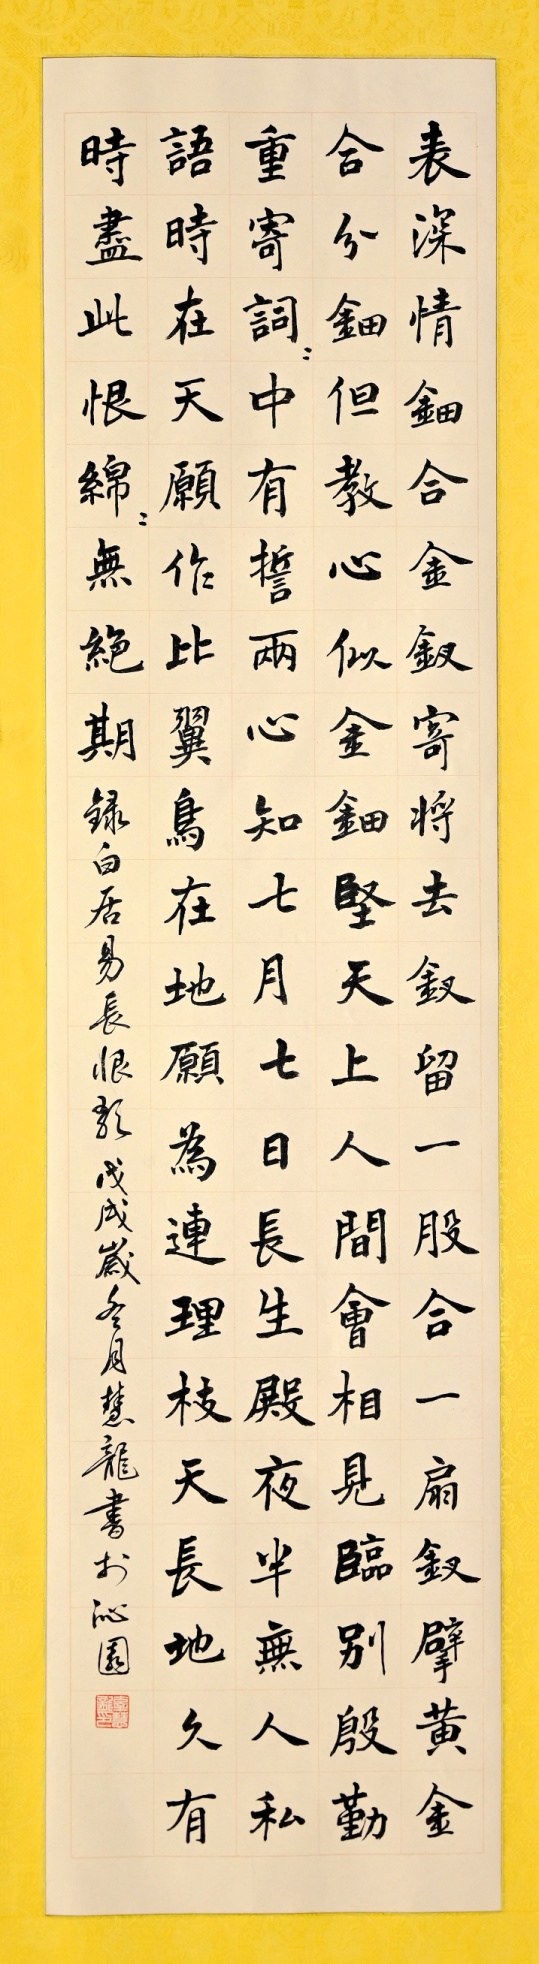 表深情鈿合金釵寄將去釵留一股合一扇釵擘黃金
合分鈿但教心似金鈿堅天上人間會相見臨別殷勤
重寄詞〻中有誓兩心知七月七日長生殿夜半無人私
語時在天願作比翼鳥在地願為連理枝天長地久有
時盡此恨綿〻無絕期
錄白居易長恨歌戊戌歲冬月慧龍書於沁園